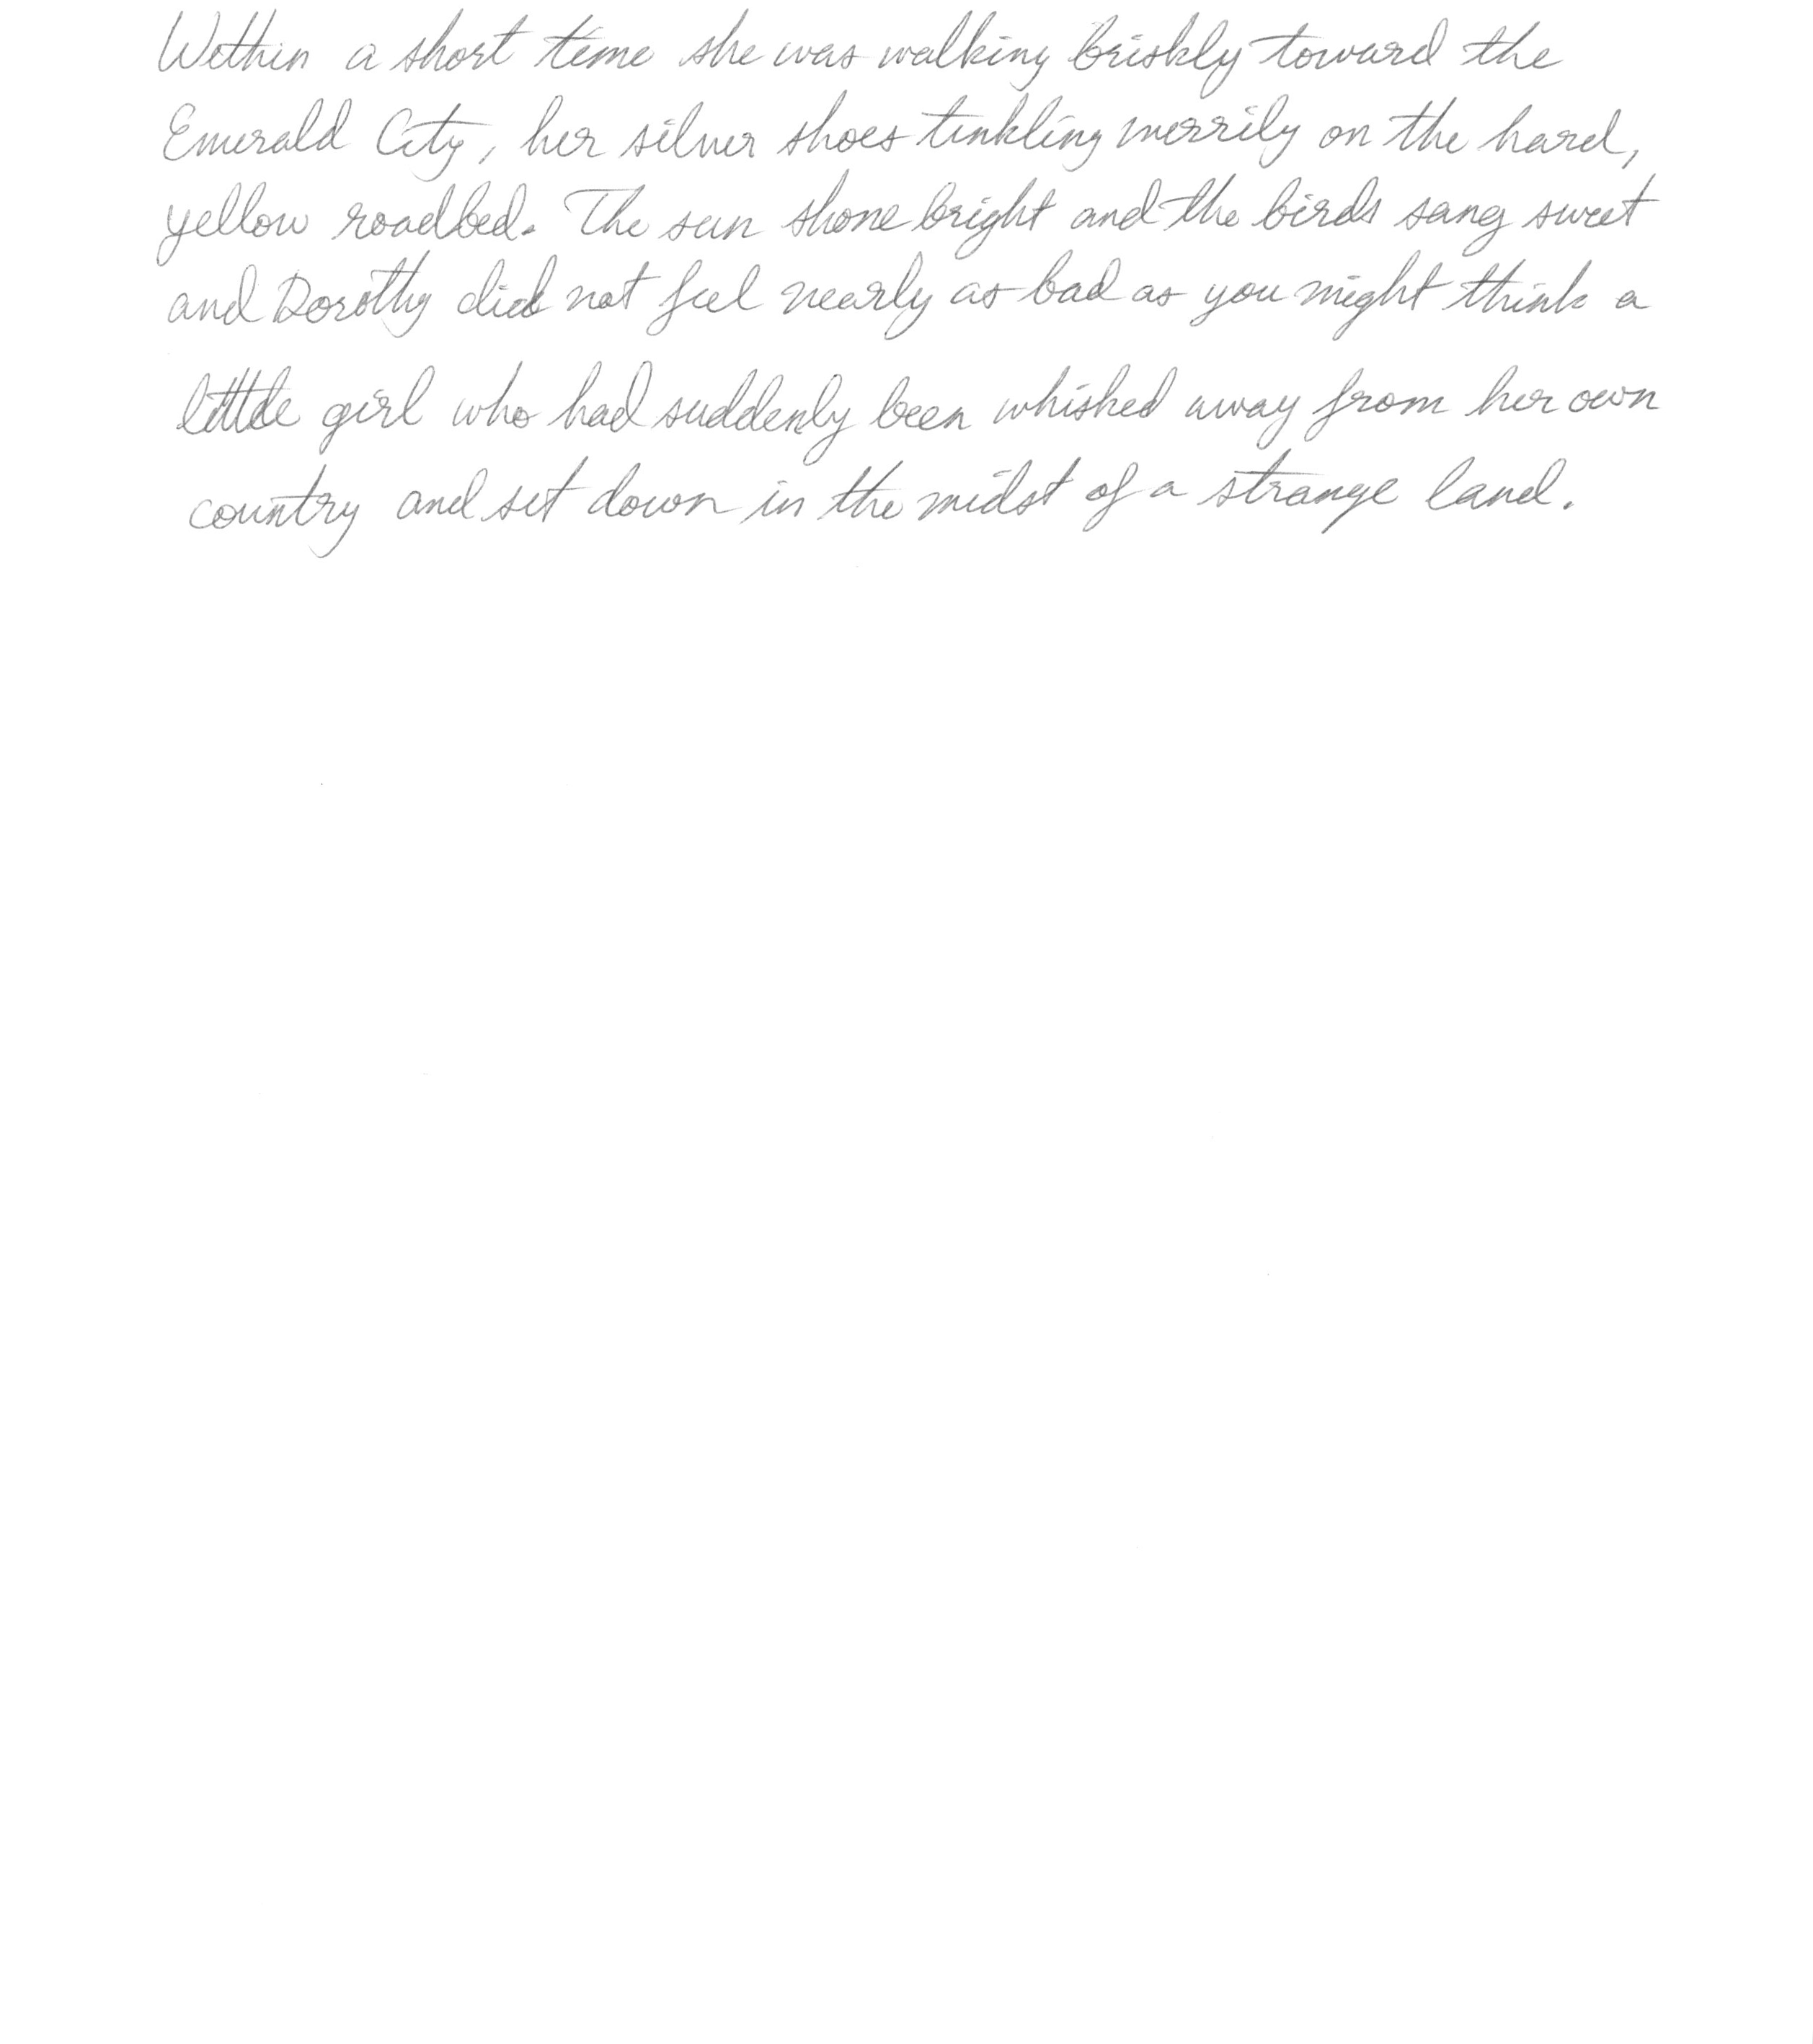 Within a short time she was walking briskly toward the
Emerald City, her silver shoes tinkling merrily on the hard,
yellow roadbed. The sun shone bright and the birds sang sweet
and Dorothy did not feel nearly as bad as you might think a
little girl who had suddenly been whisked away from her own
country and set down in the midst of a strange land.